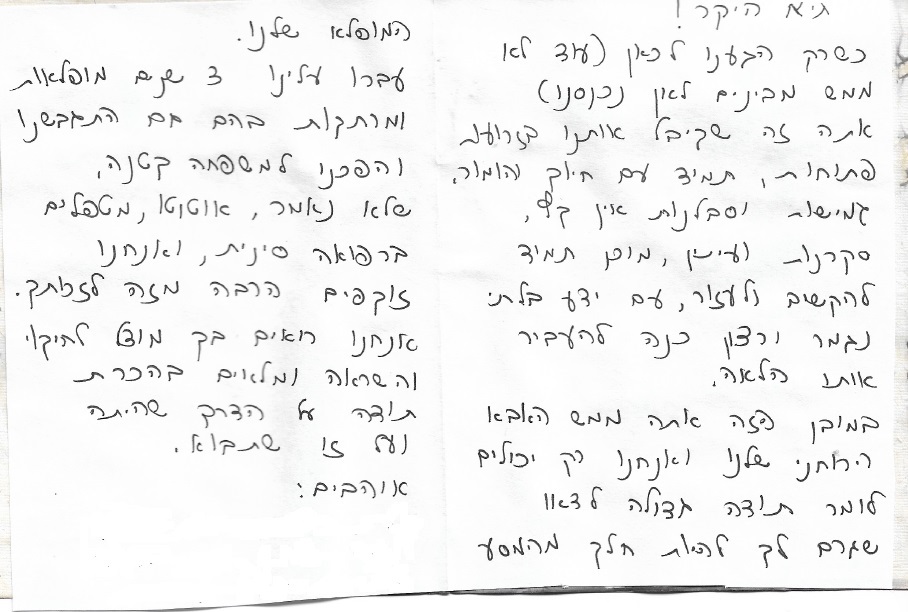 גיא היקר!
כשרק הגענו לכאן (עוד לא
ממש מבינים לאן נכנסנו)
אתה זה שקיבל אותנו בזרועות
פתוחות, תמיד עם חיוך והומור,
גמישות וסבלנות אין קץ,
סקרנות ועניין, מוכן תמיד
להקשיב ולעזור, עם ידע בלתי
נגמר ורצון כנה להעביר
אותו הלאה.
במובן הזה אתה ממש האבא
הרוחני שלנו ואנחנו רק יכולים
לומר תודה גדולה לדאו
שגרם לך להיות חלק מהמסע
המופלא שלנו.
עברו עלינו 3 שנים מופלאות
ומרתקות בהם גם התגבשנו
והפכנו למשפחה קטנה,
שלא נאמר, אוטוטו, מטפלים
ברפואה סינית, ואנחנו
זוקפים הרבה מזה לזכותך.
אנחנו רואים בך מודל לחיקוי
והשראה ומלאים בהכרת
תודה על הדרך שהיתה
ועל זו שתבוא.
אוהבים: